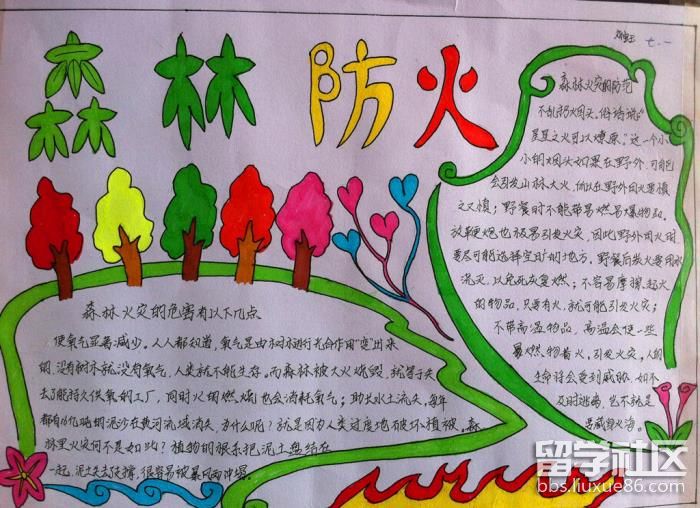 七.一
森林防火
森林火灾的防范
不乱扔烟头。俗话说"
星星之火可以燎原。"这一个小
小的烟头如果在野外,可能
会引发山林大火,所以在野外用火要慎
之又慎;野餐时不能带易燃易爆物品,
放鞭炮也极易引发火灾,因此野外用火时
要尽可能选择空旷的地方。野餐后放火要用水
浇灭,以免死灰复燃;不容易摩擦起火
的物品,只要有火,就可能引发火灾;
不带高温物品,高温会使一些
易燃物着火,引发火灾。人的
生命将会受到威胁,如不
及时逃离,也不就是
葬藏身火海。
森林火灾的危害有以下几点
使氧气显著减少。人人都知道,氧气是由树木进行光合作用"变"出来
的,没有树木就没有氧气,人类就不能生存。而森林被大火烧毁,就等于失
去了能持久供氧的工厂,同时火烟燃烧也会消耗氧气;助长水土流失,每年
都有16亿吨的泥沙在黄河流域消失,为什么呢?就是因为人类过度地破坏植被。森
林里火灾何不是如此?植物的根系把泥土盘结在
一起,泥土失去支撑,很容易被暴风雨冲塌。
留学社区
bbs.liuxue86.com